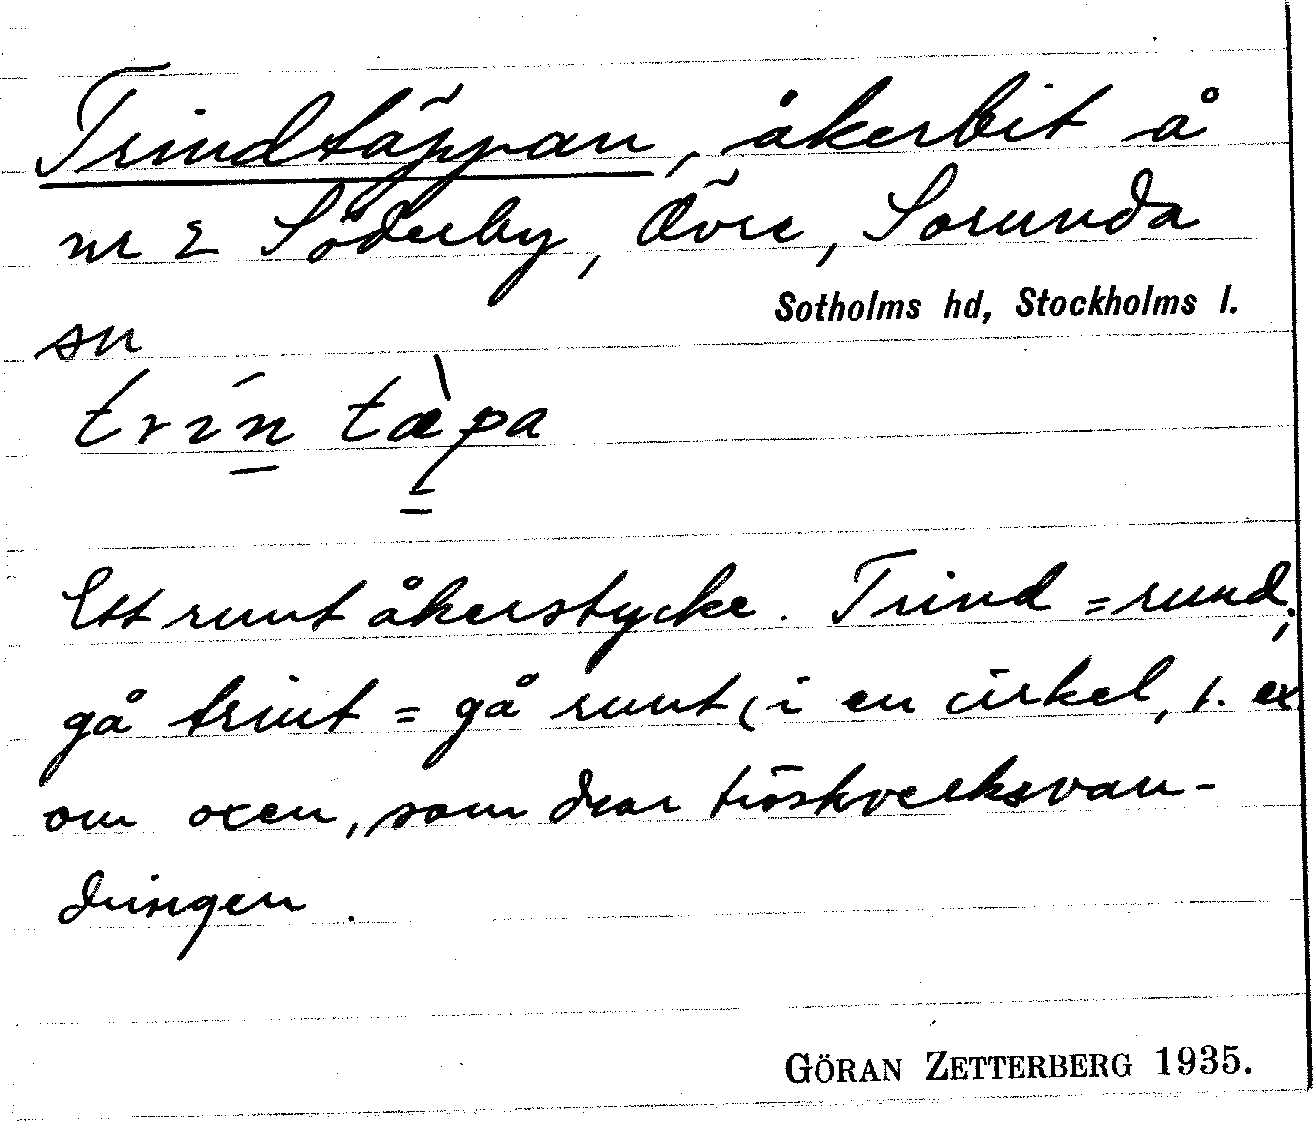 Trindtäppan, åkerbit å
nr 2 Söderby, Övre, Sorunda
Sotholms hd, Stockholms l.
sn
trin tæpa
Ett runt åkerstycke. Trind = rund;
gå trint = gå runt (i en cirkel, t. ex
om oxen, som drar tröskverksvan-
dringen.
GÖRAN ZETTERBERG 1935.